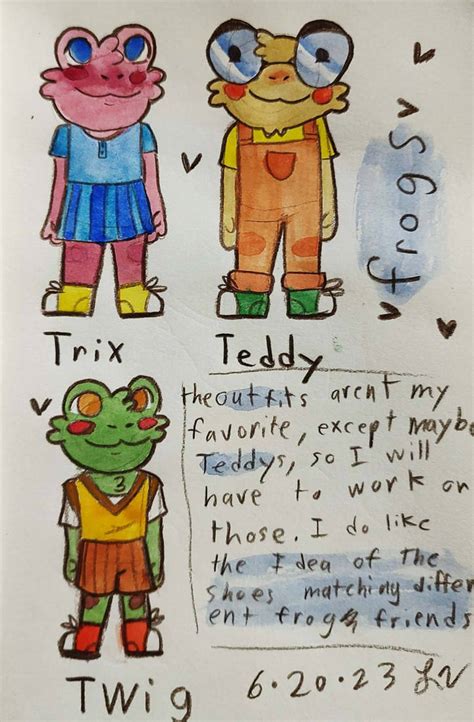 frogs
Trix
Teddy
3
the outfits arent my
favorite, except maybe
Teddys, so I will
have to work on
those. I do like
the Idea of The
shoes matching differ
ent frog friends
TWig
6.20.23 LV